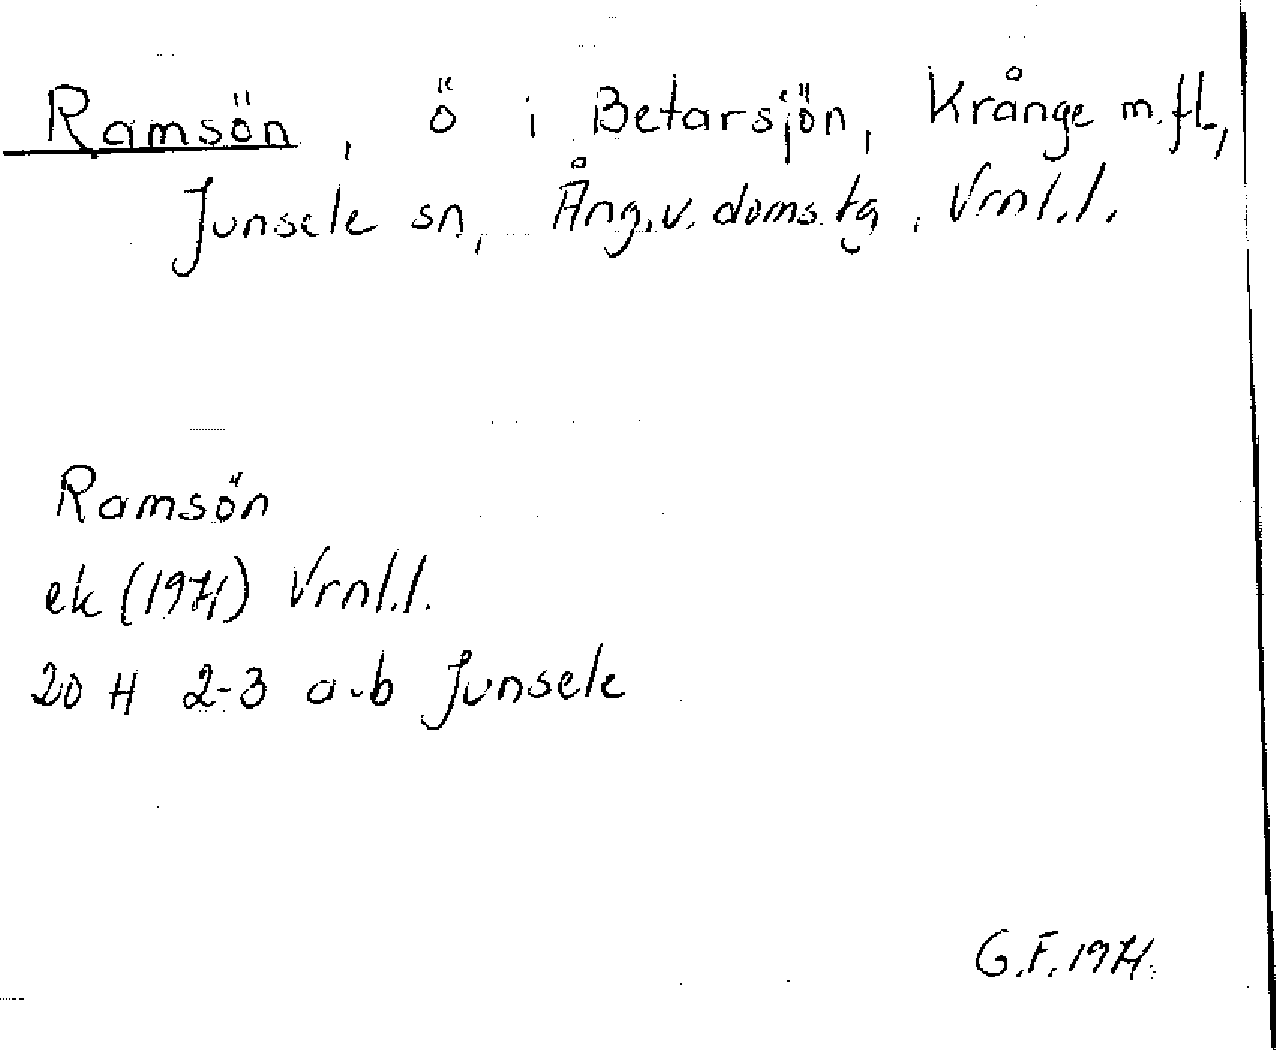 Ramsön, ö i Betarsjön, Krånge m.fl.,
Junsele sn, Ång.v. doms.tg, Vrnl.l.
Ramsön
ek (1971) Vrnl.l.
20 H 2-3 a-b Junsele
G.F. 1971.